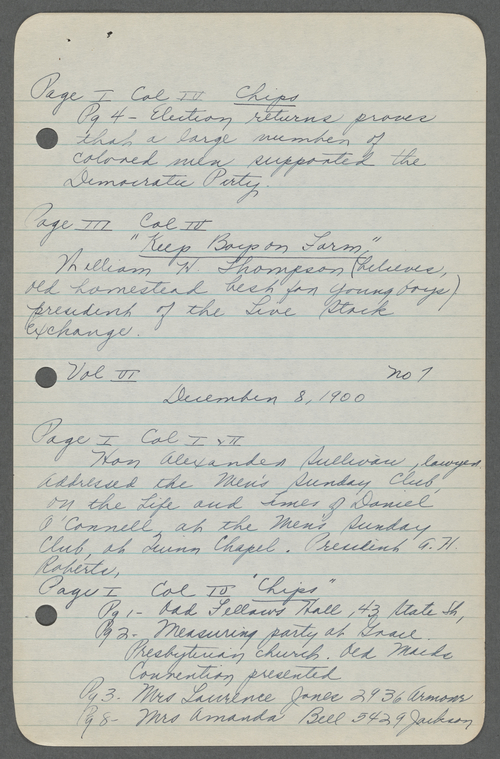 Page I Col IV Chips
Pg 4 - Election returns proves
that a large number of
colored men supported the
Democratic Party.
Page III Col IV
"Keep Boys on Farm,"
William H. Thompson (believes,
old homestead best for young boys)
president of the Live Stock
Exchange.
Vol VI No 7
December 8, 1900
Page I Col I + II
Hon Alexander Sullivan, lawyer
addressed the Men's Sunday Club,
on the Life and Times of Daniel
O'Connell, at the Men's Sunday
Club, at Quinn Chapel. President A. H.
Roberts,
Page I Col IV "Chips"
Pg 1 - Odd Fellows Hall, 43 State St,
Pg 2 - Measuring party at Grace
Presbyterian Church. Old Maids
Convention presented
Pg 3 - Mrs Laurence Jones 2936 Armour
Pg 8 - Mrs Amanda Bell 5429 Jackson